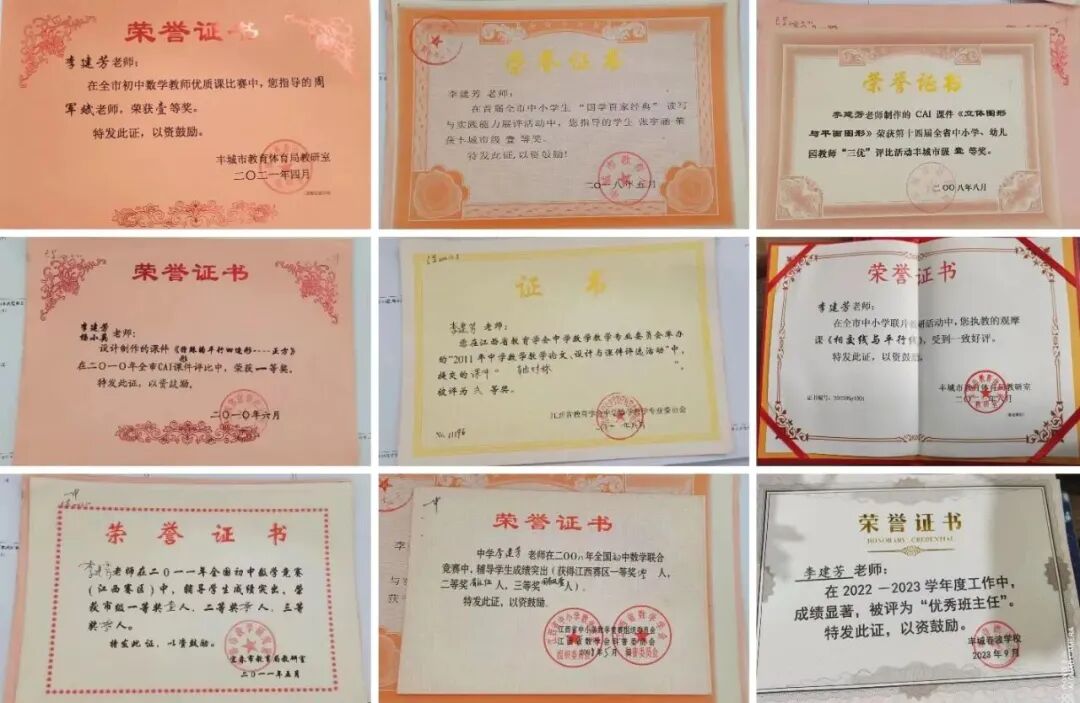 荣誉证书
李建芳老师：
在全市初中数学教师优质课比赛中，您指导的周
军斌老师，荣获壹等奖。
特发此证，以资鼓励。
丰城市教育体育局教研室
二〇二一年四月
荣誉证书
李建芳 老师：
在首届全市中小学生“国学百家经典”读写
与实践能力展评活动中，您指导的学生 张宇涵 荣
获丰城市级 壹 等奖。
特发此证，以资鼓励！
二〇一八年五月
荣誉证书
李建芳老师制作的 CAI 课件《立体图形
与平面图形》荣获第十四届全省中小学、幼儿
园教师“三优”评比活动丰城市级 壹 等奖。
二〇〇八年八月
荣誉证书
李建芳
杨小英 老师：
设计制作的课件《特殊的平行四边形----正方形》
在二〇一〇年全市CAI课件评比中，荣获一等奖。
特发此证，以资鼓励。
二〇一〇年六月
证 书
李建芳 老师：
您在江西省教育学会中学数学教学专业委员会举办
的“2011年中学数学教学论文、设计与课件评选活动”中，
提交的 课件“轴对称
被评为 贰 等奖。
江西省教育学会中学数学教学专业委员会
No. 11196
荣誉证书
李建芳老师：
在全市中小学联片教研活动中，您执教的观摩
课《相交线与平行线》，受到一致好评。
特发此证，以资鼓励。
丰城市教育体育局教研室
证书编号：
荣 誉 证 书
李建芳老师在二〇一一年全国初中数学竞赛
（江西赛区）中，辅导学生成绩突出，荣
获市级一等奖 人，二等奖 人，三等
奖 人。
特发此证，以资鼓励。
宜春市教育局教研室
二〇一一年五月
荣誉证书
中学李建芳 老师在二〇〇八年全国初中数学联合
竞赛中，辅导学生成绩突出（获得江西赛区一等奖 人，
二等奖 人，三等奖 人）。
特发此证，以资鼓励。
2008年5月
荣誉证书
HONORARY CREDENTIAL
李建芳 老师：
在 2022—2023 学年度工作中，
成绩显著，被评为“优秀班主任”。
特发此证，以资鼓励。
丰城春波学校
2023年9月